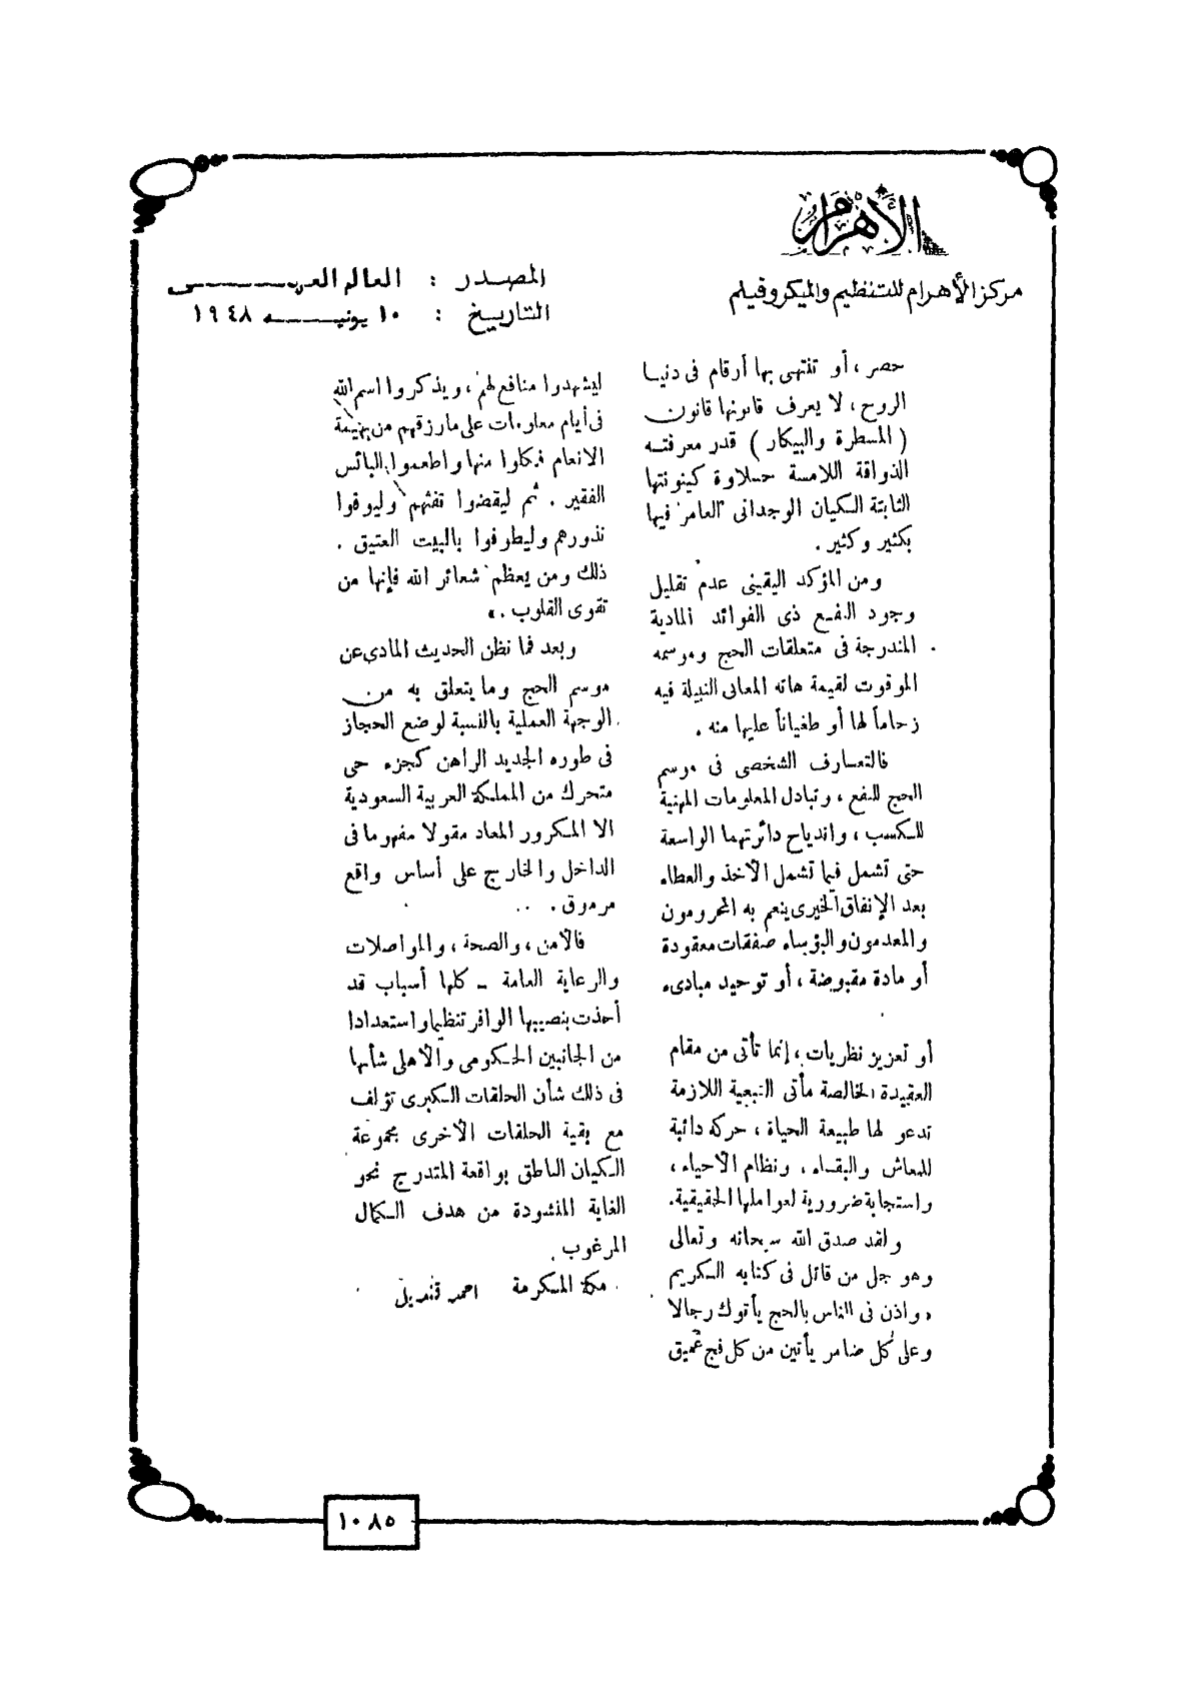 الأهرام
مركز الأهرام للتنظيم والميكروفيلم
المصدر : العالم العربى
التاريخ : ١٠ يونيه ١٩٤٨
حصر ، أو تنتهى بها أرقام فى دنيا
الروح ، لا يعرف قانونها قانون
( المسطرة والبيكار ) قدر معرفته
الذواقة اللامسة حلاوة كينونتها
الثابتة الكيان الوجدانى العامر فيها
بكثير وكثير .
ومن المؤكد اليقينى عدم تقليل
وجود النفع ذى الفوائد المادية
المندرجة فى متعلقات الحج وموسمه
الموقوت لقيمة هاته المعانى النبيلة فيه
زحاماً لها أو طغياناً عليها منه .
فالتعارف الشخصى فى موسم
الحج للنفع ، وتبادل المعلومات المهنية
للكسب ، واندياح دائرتهما الواسعة
حتى تشمل فيما تشمل الأخذ والعطاء
بعد الإنفاق الخيرى ينعم به المحرومون
والمعدمون والبؤساء صفقات معقودة
أو مادة مقبوضة ، أو توحيد مبادىء
أو تعزيز نظريات ، إنما تأتى من مقام
العقيدة الخالصة مأتى التبعية اللازمة
تدعو لها طبيعة الحياة ، حركة دائبة
للمعاش والبقاء ، ونظام الأحياء ،
واستجابة ضرورية لعواملها الحقيقية.
ولقد صدق الله سبحانه وتعالى
وهو جل من قائل فى كتابه الكريم
« واذن فى الناس بالحج يأتوك رجالا
وعلى كل ضامر يأتين من كل فج عميق
ليشهدوا منافع لهم ، ويذكروا اسم الله
فى أيام معلومات على مارزقهم من بهيمة
الانعام فكلوا منها واطعموا البائس
الفقير . ثم ليقضوا تفثهم وليوفوا
نذورهم وليطوفوا بالبيت العتيق .
ذلك ومن يعظم شعائر الله فإنها من
تقوى القلوب . »
وبعد فما نظن الحديث المادى عن
موسم الحج وما يتعلق به من
الوجهة العملية بالنسبة لوضع الحجاز
فى طوره الجديد الراهن كجزء حى
متحرك من المملكة العربية السعودية
الا المكرور المعاد مقولا مفهوما فى
الداخل والخارج على أساس واقع
مرموق . ..
فالأمن ، والصحة ، والمواصلات
والرعاية العامة ـ كلها أسباب قد
أخذت بنصيبها الوافر تنظيما واستعدادا
من الجانبين الحكومى والأهلى شأنها
فى ذلك شأن الحلقات الكبرى تؤلف
مع بقية الحلقات الأخرى مجموعة
الكيان الناطق بواقعة المتدرج نحو
الغاية المنشودة من هدف الكمال
المرغوب .
مكة المكرمة احمد قنديل
١٠٨٥